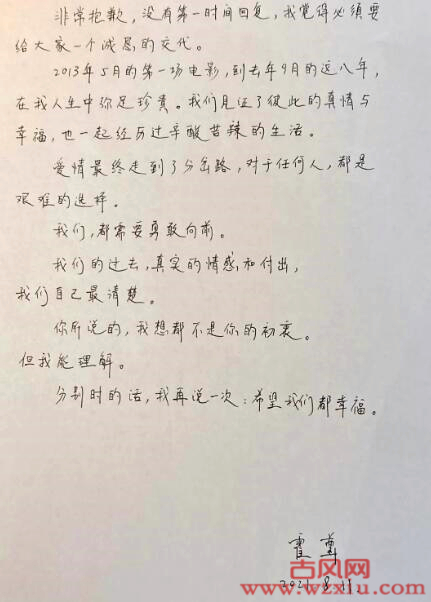 非常抱歉,没有第一时间回复,我觉得必须要
给大家一个诚恳的交代。
2013年5月的第一场电影,到去年9月的这八年,
在我人生中弥足珍贵。我们见证了彼此的真情与
幸福,也一起经历过辛酸苦辣的生活。
爱情最终走到了分岔路,对于任何人,都是
艰难的选择。
我们,都需要勇敢向前。
我们的过去,真实的情感和付出,
我们自己最清楚。
你所说的,我想都不是你的初衷。
但我能理解。
分别时的话,我再说一次:希望我们都幸福。
霍尊
2021.8.11.
古风网
www.wzxiu.com